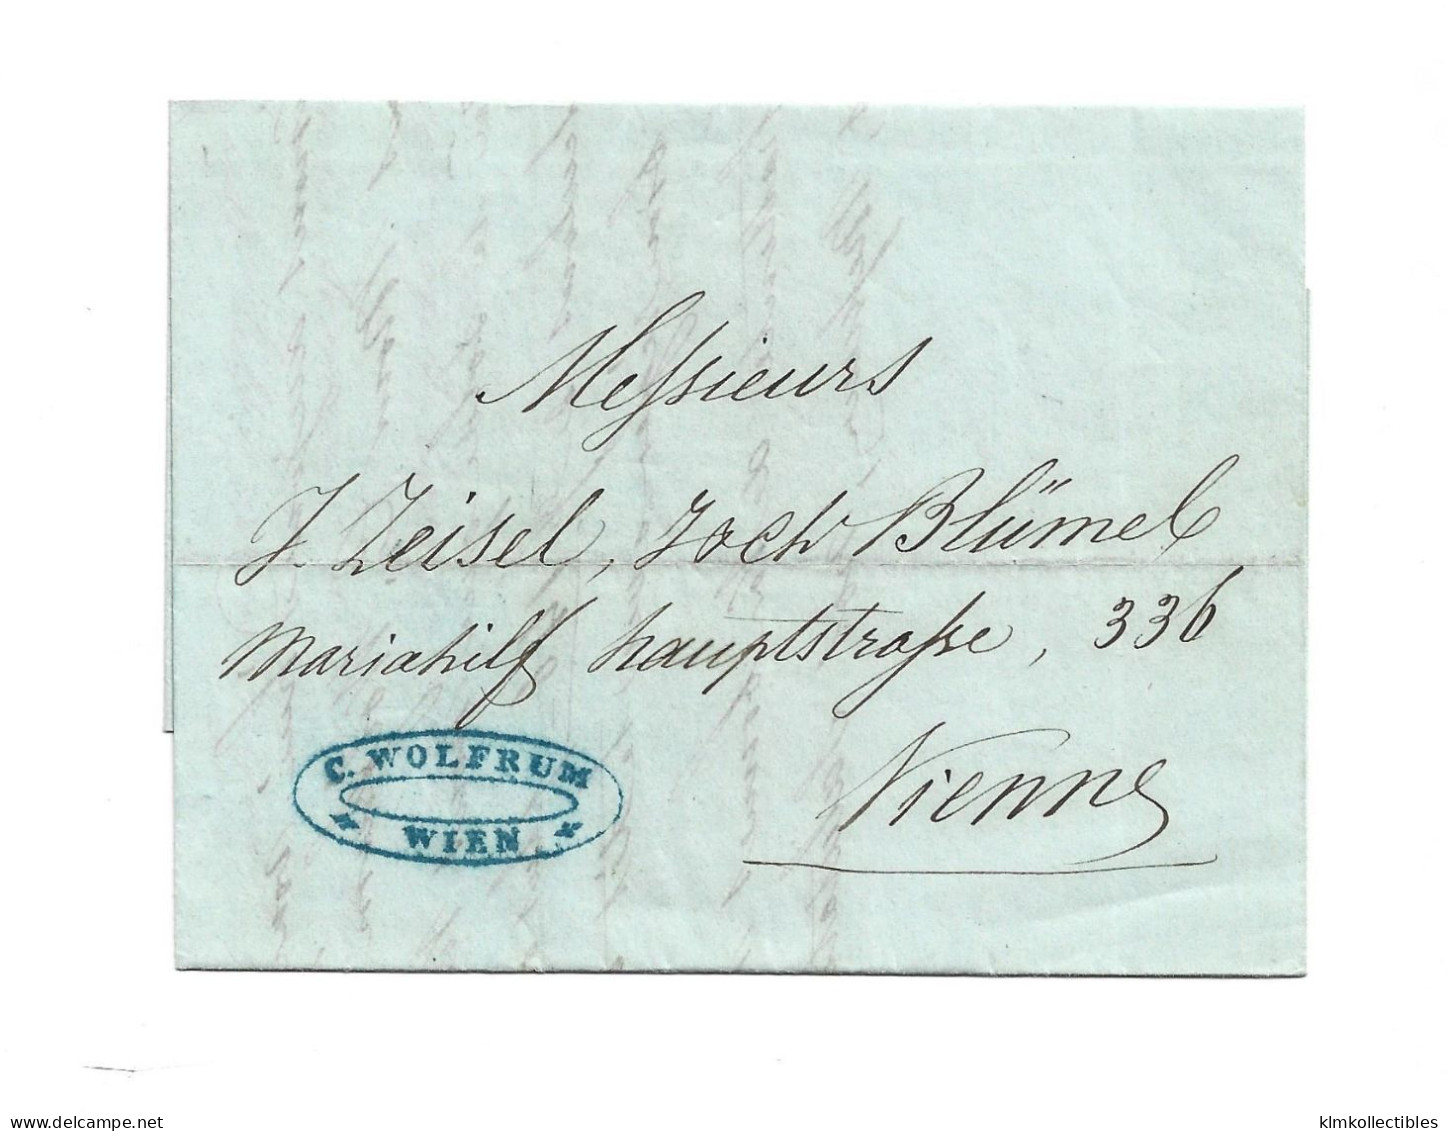 Messieurs
J. Zeisel, Joch Blümel
Mariahilf hauptstraße, 336
Vienne
C. WOLFRUM
WIEN
delcampe.net
klmkollectibles